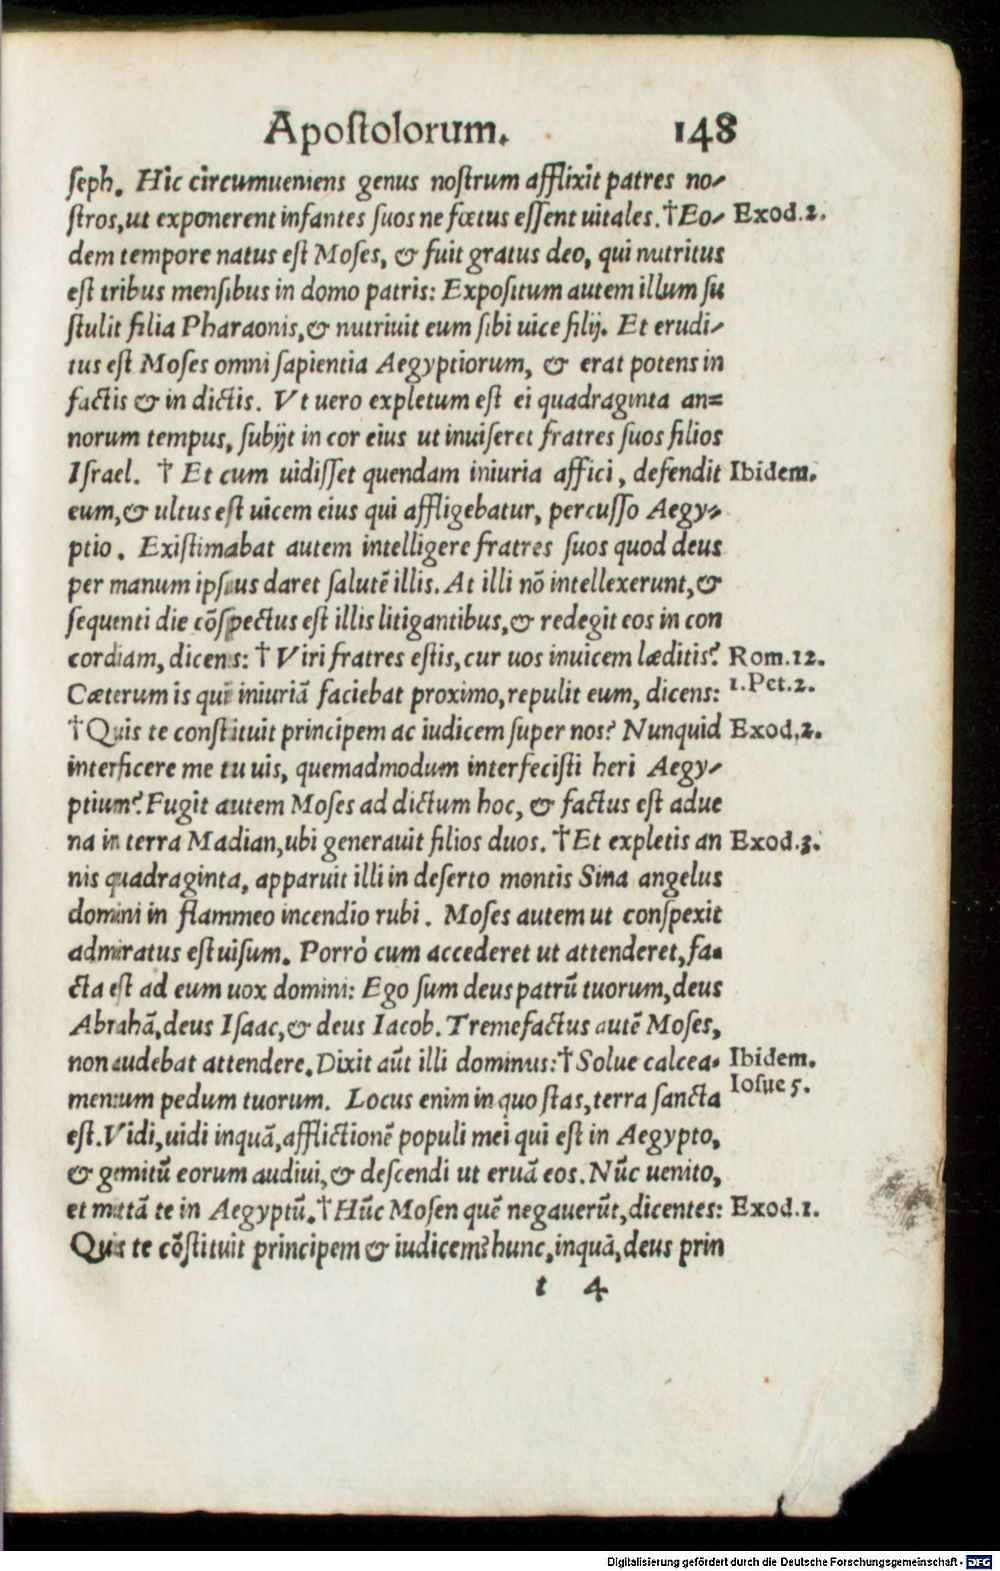 Apostolorum. 148
ſeph. Hic circumueniens genus noſtrum afflixit patres no-
ſtros, ut exponerent infantes ſuos ne fœtus eſſent uitales. †Eo- Exod.2.
dem tempore natus eſt Moſes, & fuit gratus deo, qui nutritus
eſt tribus menſibus in domo patris: Expoſitum autem illum ſu
ſtulit filia Pharaonis, & nutriuit eum ſibi uice filij. Et erudi-
tus eſt Moſes omni ſapientia Aegyptiorum, & erat potens in
factis & in dictis. Vt uero expletum eſt ei quadraginta an=
norum tempus, ſubijt in cor eius ut inuiſeret fratres ſuos filios
Iſrael. † Et cum uidiſſet quendam iniuria affici, defendit Ibidem.
eum, & ultus eſt uicem eius qui affligebatur, percuſſo Aegy-
ptio. Exiſtimabat autem intelligere fratres ſuos quod deus
per manum ipſius daret ſalutē illis. At illi nō intellexerunt, &
ſequenti die cōſpectus eſt illis litigantibus, & redegit eos in con
cordiam, dicens: † Viri fratres eſtis, cur uos inuicem læditis? Rom.12.
Cæterum is qui iniuriā faciebat proximo, repulit eum, dicens: 1.Pet.2.
†Quis te conſtituit principem ac iudicem ſuper nos? Nunquid Exod.2.
interficere me tu uis, quemadmodum interfeciſti heri Aegy-
ptium? Fugit autem Moſes ad dictum hoc, & factus eſt adue
na in terra Madian, ubi generauit filios duos. †Et expletis an Exod.3.
nis quadraginta, apparuit illi in deſerto montis Sina angelus
domini in flammeo incendio rubi. Moſes autem ut conſpexit
admiratus eſt uiſum. Porrò cum accederet ut attenderet, fa-
cta eſt ad eum uox domini: Ego ſum deus patrū tuorum, deus
Abrahā, deus Iſaac, & deus Iacob. Tremefactus autē Moſes,
non audebat attendere. Dixit aūt illi dominus: † Solue calcea- Ibidem.
mentum pedum tuorum. Locus enim in quo ſtas, terra ſancta Ioſue 5.
eſt. Vidi, uidi inquā, afflictionē populi mei qui eſt in Aegypto,
& gemitū eorum audiui, & deſcendi ut eruā eos. Nūc uenito,
et mittā te in Aegyptū. †Hūc Moſen quē negauerūt, dicentes: Exod.1.
Quis te cōſtituit principem & iudicem? hunc, inquā, deus prin
t 4
Digitalisierung gefördert durch die Deutsche Forschungsgemeinschaft - DFG